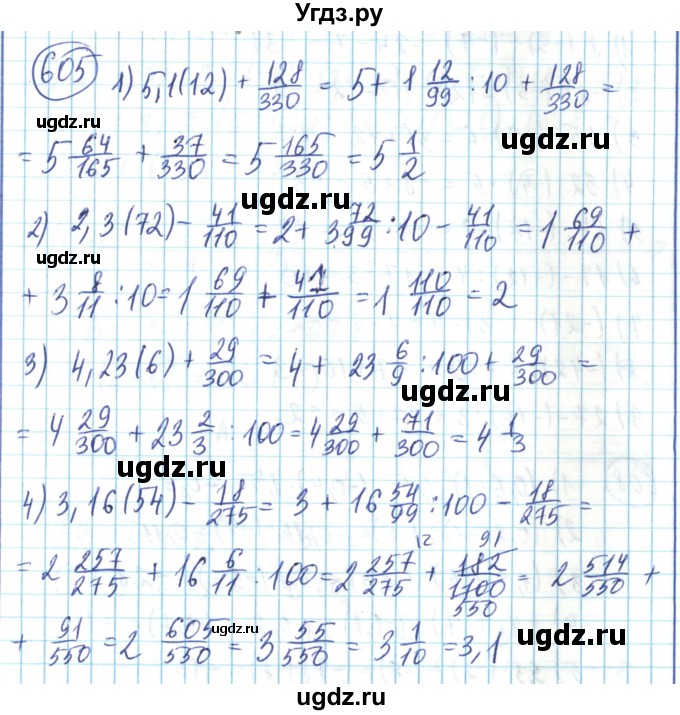 Угдз.ру
605 1) 5,1(12) + 128/330 = 5 + 1 12/99 : 10 + 128/330 =
ugdz.ru ugdz.ru
= 5 64/165 + 37/330 = 5 165/330 = 5 1/2
ugdz.ru
2) 2,3(72) - 41/110 = 2 + 3 72/99 : 10 - 41/110 = 1 69/110 +
ugdz.ru
+ 3 8/11 : 10 = 1 69/110 + 41/110 = 1 110/110 = 2
3) 4,23(6) + 29/300 = 4 + 23 6/9 : 100 + 29/300 =
ugdz.ru
= 4 29/300 + 23 2/3 : 100 = 4 29/300 + 71/300 = 4 1/3
ugdz.ru
4) 3,16(54) - 18/275 = 3 + 16 54/99 : 100 - 18/275 =
ugdz.ru
= 2 257/275 + 16 6/11 : 100 = 2 257/275 12 + 182/1100 91/550 = 2 514/550 +
ugdz.ru
+ 91/550 = 2 605/550 = 3 55/550 = 3 1/10 = 3,1
ugdz.ru
ugdz.ru